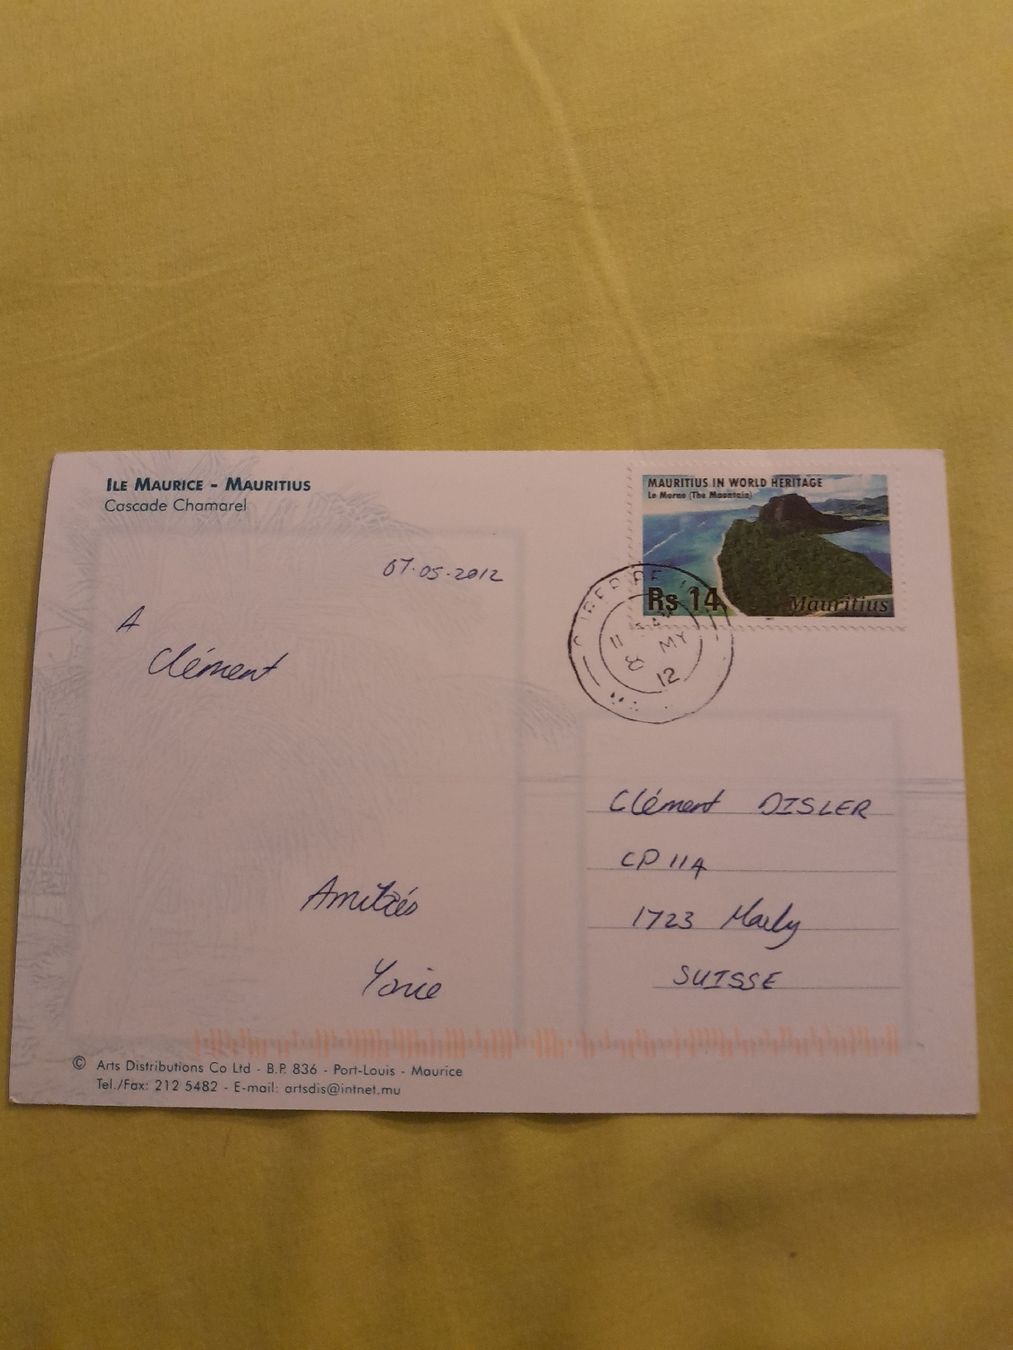 ILE MAURICE - MAURITIUS
Cascade Chamarel
MAURITIUS IN WORLD HERITAGE
Le Morne (The Mountain)
Rs 14
Mauritius
11
8 MY
12
07.05.2012
A
Clément
Amitiés
Clément DISLER
CP 114
1723 Marly
SUISSE
© Arts Distributions Co Ltd - B.P. 836 - Port-Louis - Maurice
Tel./Fax: 212 5482 - E-mail: artsdis@intnet.mu